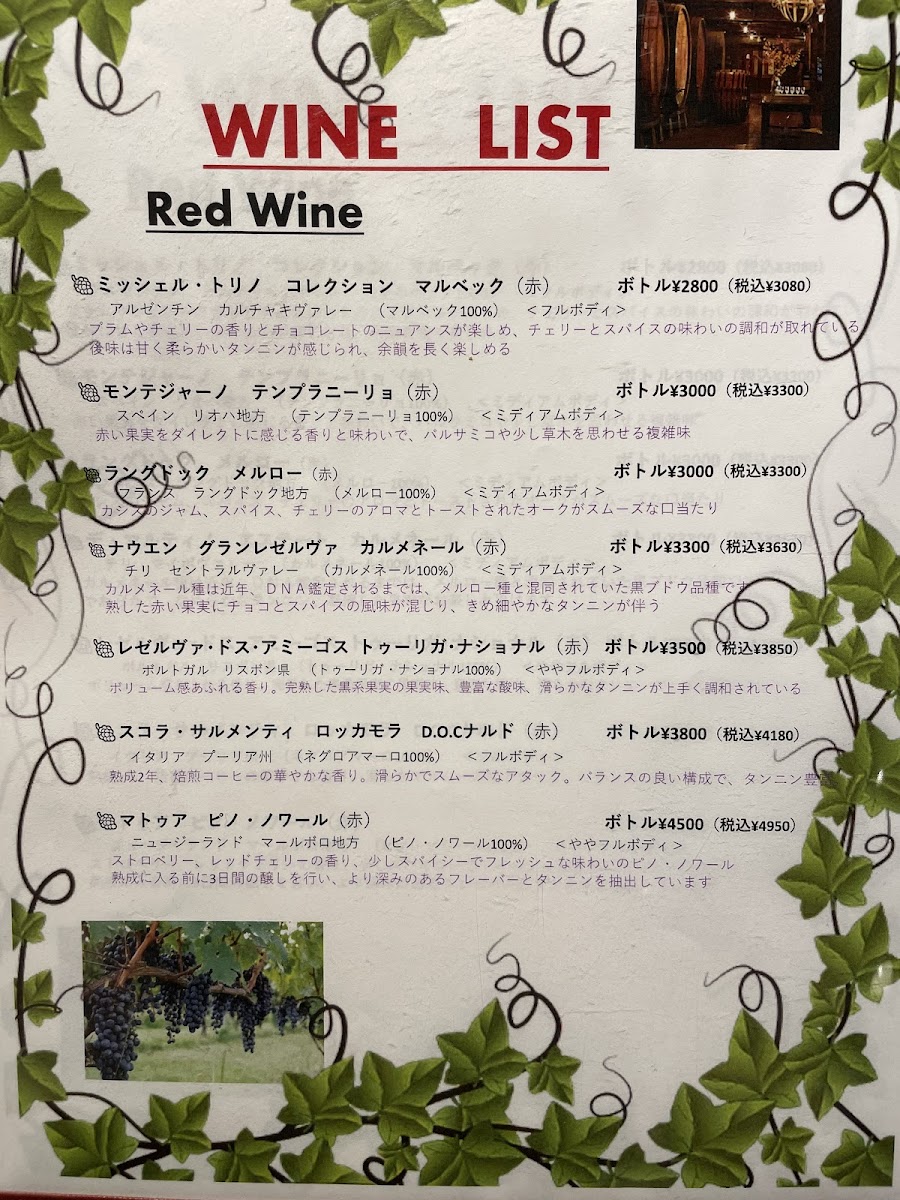 WINE LIST
Red Wine
ミッシェル・トリノ コレクション マルベック（赤） ボトル¥2800（税込¥3080）
アルゼンチン カルチャキヴァレー （マルベック100%） ＜フルボディ＞
プラムやチェリーの香りとチョコレートのニュアンスが楽しめ、チェリーとスパイスの味わいの調和が取れている
後味は甘く柔らかいタンニンが感じられ、余韻を長く楽しめる
モンテジャーノ テンプラニーリョ（赤） ボトル¥3000（税込¥3300）
スペイン リオハ地方 （テンプラニーリョ100%） ＜ミディアムボディ＞
赤い果実をダイレクトに感じる香りと味わいで、バルサミコや少し草木を思わせる複雑味
ラングドック メルロー（赤） ボトル¥3000（税込¥3300）
フランス ラングドック地方 （メルロー100%） ＜ミディアムボディ＞
カシスのジャム、スパイス、チェリーのアロマとトーストされたオークがスムーズな口当たり
ナウエン グランレゼルヴァ カルメネール（赤） ボトル¥3300（税込¥3630）
チリ セントラルヴァレー （カルメネール100%） ＜ミディアムボディ＞
カルメネール種は近年、ＤＮＡ鑑定されるまでは、メルロー種と混同されていた黒ブドウ品種です
熟した赤い果実にチョコとスパイスの風味が混じり、きめ細やかなタンニンが伴う
レゼルヴァ・ドス・アミーゴス トゥーリガ・ナショナル（赤） ボトル¥3500（税込¥3850）
ポルトガル リスボン県 （トゥーリガ・ナショナル100%） ＜ややフルボディ＞
ボリューム感あふれる香り。完熟した黒系果実の果実味、豊富な酸味、滑らかなタンニンが上手く調和されている
スコラ・サルメンティ ロッカモラ D.O.Cナルド（赤） ボトル¥3800（税込¥4180）
イタリア プーリア州 （ネグロアマーロ100%） ＜フルボディ＞
熟成2年、焙煎コーヒーの華やかな香り。滑らかでスムーズなアタック。バランスの良い構成で、タンニン豊富
マトゥア ピノ・ノワール（赤） ボトル¥4500（税込¥4950）
ニュージーランド マールボロ地方 （ピノ・ノワール100%） ＜ややフルボディ＞
ストロベリー、レッドチェリーの香り、少しスパイシーでフレッシュな味わいのピノ・ノワール
熟成に入る前に3日間の醸しを行い、より深みのあるフレーバーとタンニンを抽出しています